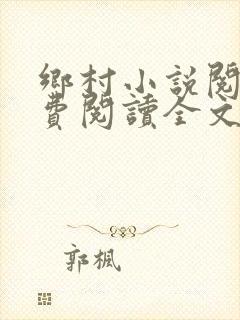 鄉村小說閱
費閱讀全文
郭楓